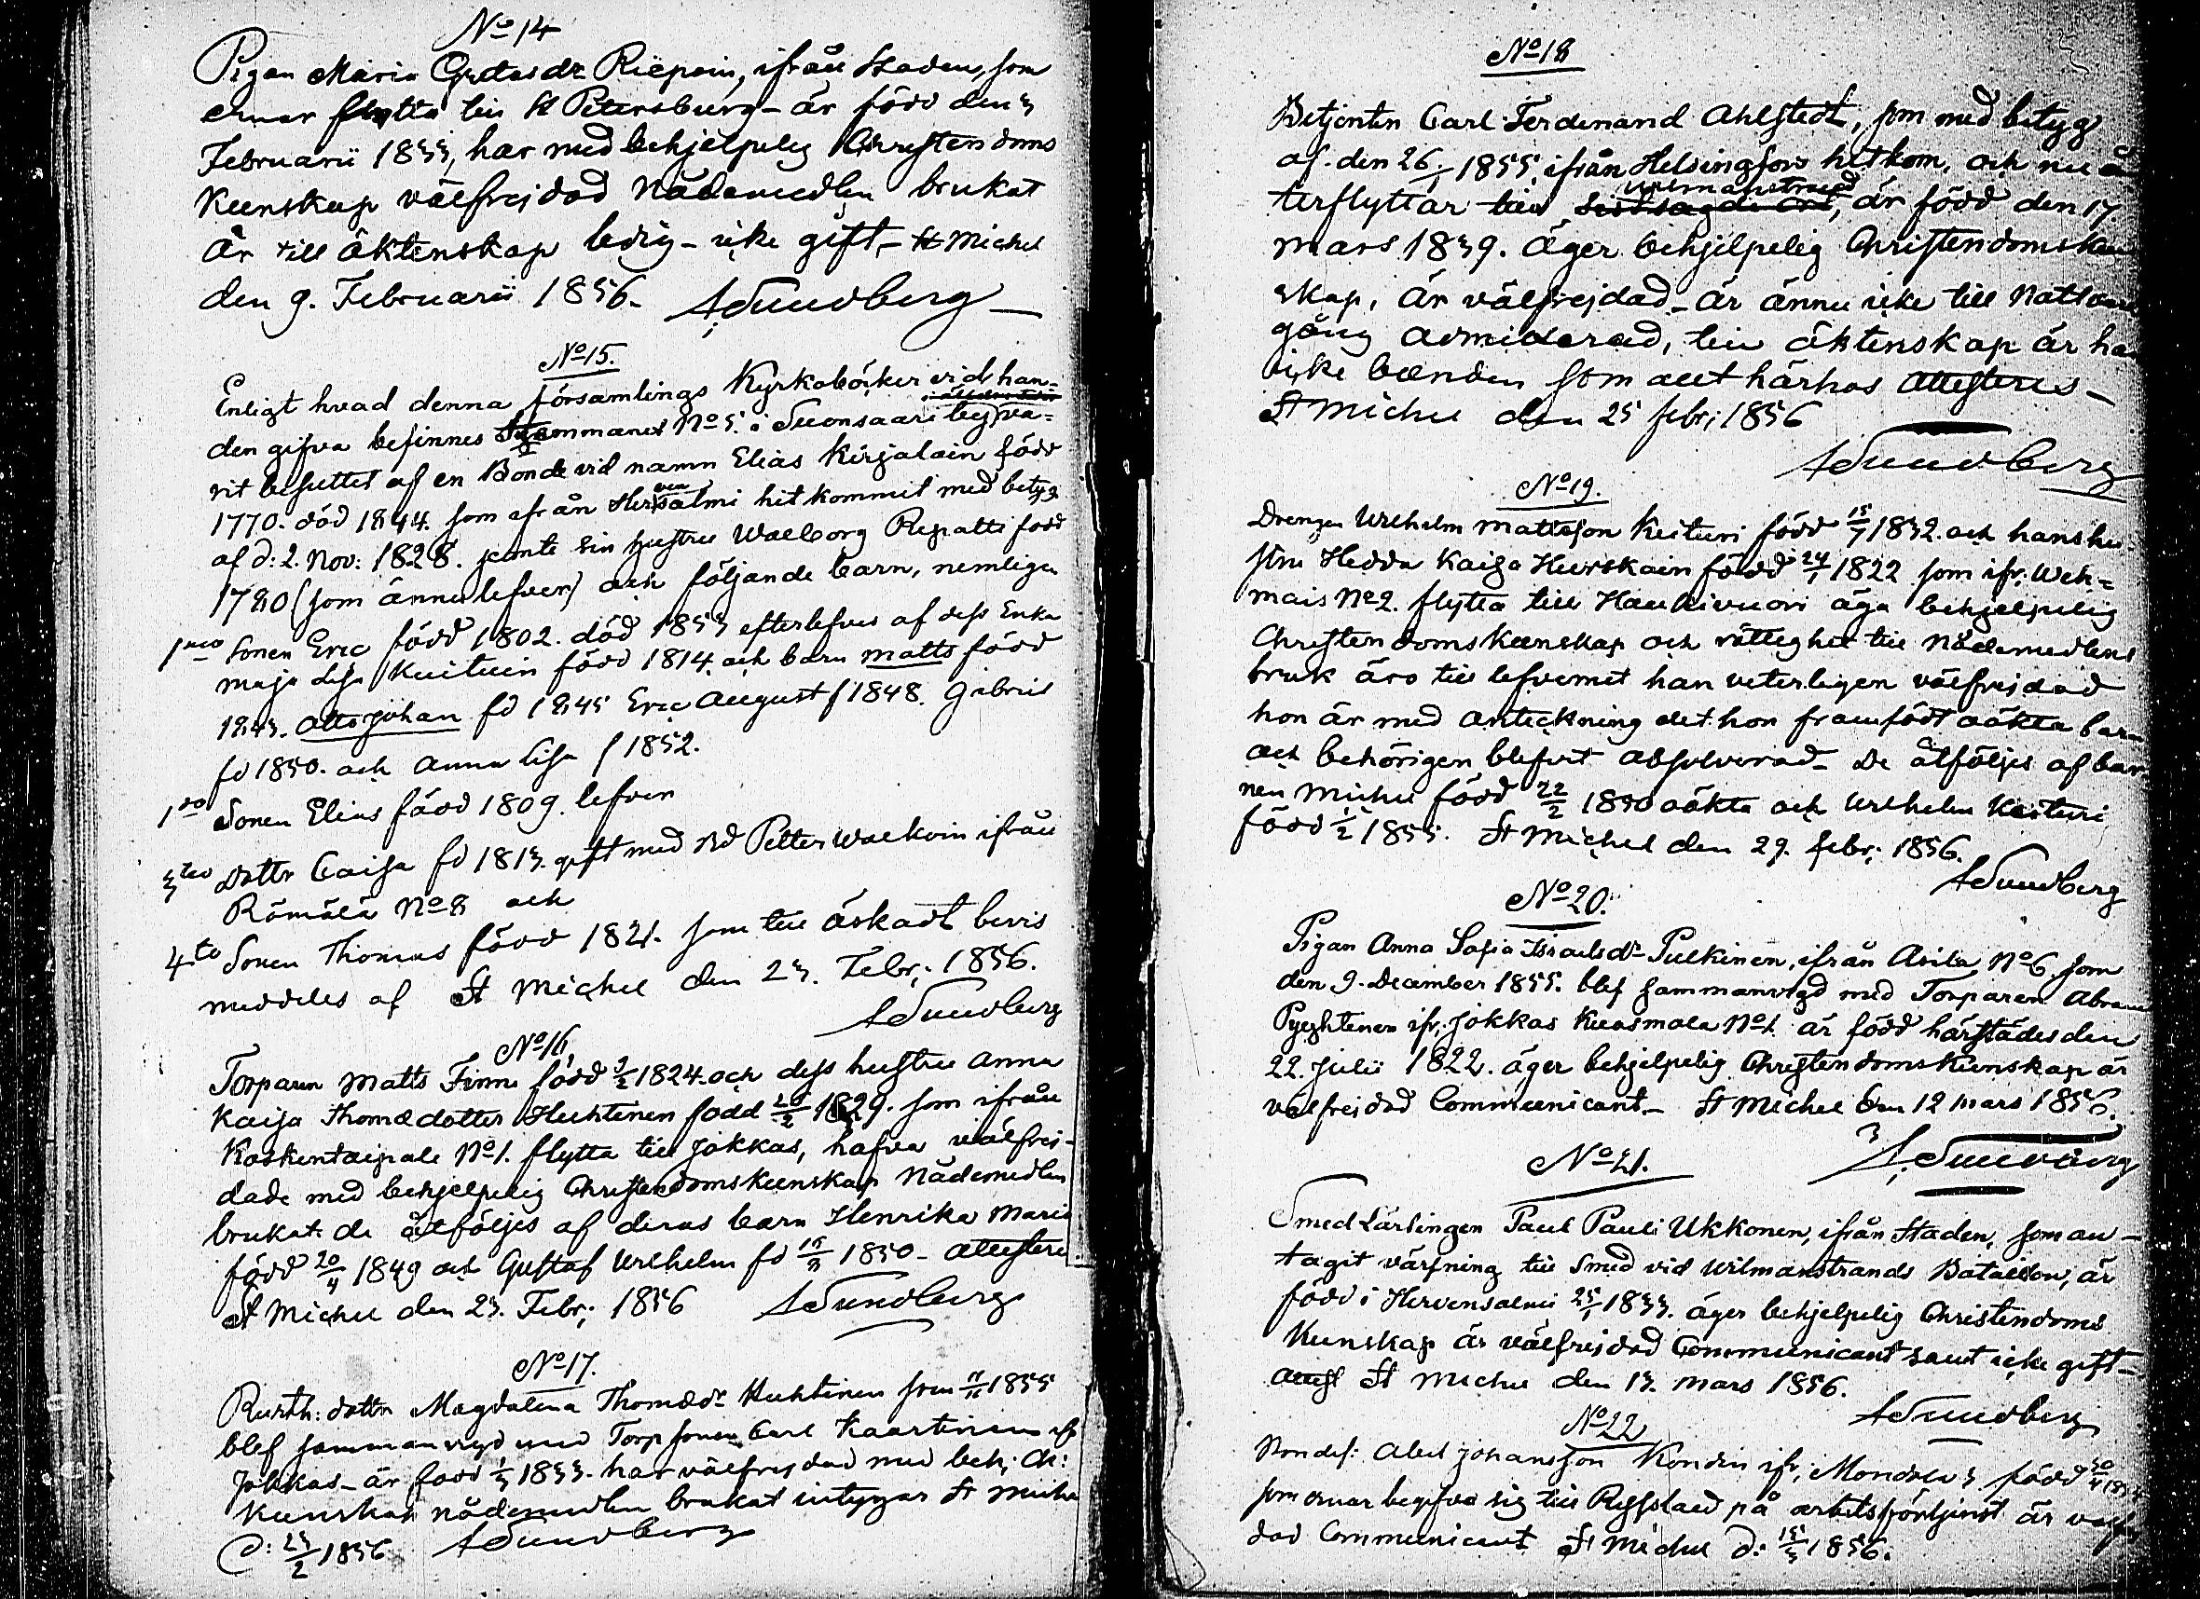 No 14
Pigan Maria Gretasdr Riepoin, ifrån Staden, som
ernar flytta till St Petersburg - är född den 3
Februarii 1833, har med behjelpelig Christendoms
Kunskap välfrejdad Nådemedlen brukat
Är till äktenskap ledig - icke gift, - St Michel
den 9. Februarii 1856. ASundberg
No 15.
Enligt hvad denna församlings Kyrkoböcker vid han-
den gifva befinnes Hemmanet No 5. i Suonsaari by va-
rit besuttet af en Bonde vid namn Elias Kirjalain född
1770. död 1844. som ifrån Hirvensalmi hitkommit med betyg
af d: 2. Nov: 1828. jemte sin hustru Walborg Repatti född
1780 (som ännu lefver) och följande barn, nemligen
1mo Sonen Eric född 1802. död 1853 efterlefves af dess Enka
Maja Lisa Kuituin född 1814. och barn Matts född
1843. Otto Johan fd 1845 Eric August f 1848. Gabriel
fd 1850. och Anna Lisa f 1852.
Sonen Elias född 1809. lefver
3tio Dottr Caisa fd 1813. gift med Petter Walkoin ifrån
Römälä No 8 och
4to Sonen Thomas född 1821. som till äskadt bevis
meddeles af St Michel den 23. Febr: 1856.
ASundberg
No 16.
Torparen Matts Finne född 3/2 1824. och dess hustru Anna
Kaisa Thomædotter Huhtinen född 1829. som ifrån
Koskentaipale No 1. flytta till Jokkas, hafva välfrej-
dade med behjelpelig Christendomskunskap Nådemedlen
brukat. de åtföljes af deras barn Henrika Maria
född 20/4 1849 och Gustaf Wilhelm fd 1850 - attestere
St Michel den 23. Febr: 1856 ASundberg
No 17.
dottr Magdalena Thomædr Huhtinen som 1855
blef sammanvigd med Torp sonen Carl Kaartinen ifr
Jokkas - är född 1833. har välfrejdad med beh: Ch:
kunskap nådemedlen brukat intygar St Michel
d: 23/2 1856 ASundberg
No 18
Betjenten Carl Ferdinand Ahlstedt, som med betyg
af den 26/1 1855, ifrån Helsingfors hitkom, och nu å
Wilmanstrand
terflyttar till sistsagde ort, är född den 17.
Mars 1839. Äger behjelpelig Christendomskun
skap, är välfrejdad - är ännu icke till Nattvard
gång admitterad, till äktenskap är han
icke bunden som allt härhos attesteres -
St Michel den 25 febr: 1856
ASundberg
No 19.
Drengen Wilhelm Mattsson Keituri född 15/7 1832. och hans hu-
stru Hedda Kaisa Hurskain född 24/1 1822 som ifr: Weh-
mais No 2. flytta till Haukivuori äga behjelpelig
Christendomskunskap och rättighet till Nådemedlens
bruk äro till lefvernet han veterligen välfrejdad
hon är med anteckning det hon framfödt oäkta barn
och behörigen blifvit absolverad - De åtföljes af bar
nen Michel född 22/2 1850 oäkta och Wilhelm Keituri
född 1855. St Michel den 29. febr: 1856.
ASundberg
No 20.
Pigan Anna Sofia Israelsdr Pulkinen, ifrån Asila No 6. som
den 9. December 1855. blef sammanvigd med Torparen Abram
ifr: Jokkas Kuosmala No 1. är född härstädes den
22. Julii 1822. äger behjelpelig Christendomskunskap är
välfrejdad Communicant - St Michel den 12 Mars 1856.
A.Sundberg
No 21.
Smed Lärlingen Paul Pauli Ukkonen, ifrån Staden, som an-
tagit värfning till Smed vid Wilmanstrands Bataillon, är
född i Hirvensalmi 25/1 1833. äger behjelpelig Christendoms
Kunskap är välfrejdad Communicant samt icke gift -
attest St Michel den 13. Mars 1856.
ASundberg
No 22
Abel Johansson Kondin ifr: Mondola 3 född
som ernar begifva sig till Ryssland på arbetsförtjenst är välfr
dad Communicant St Michel d: 1856.